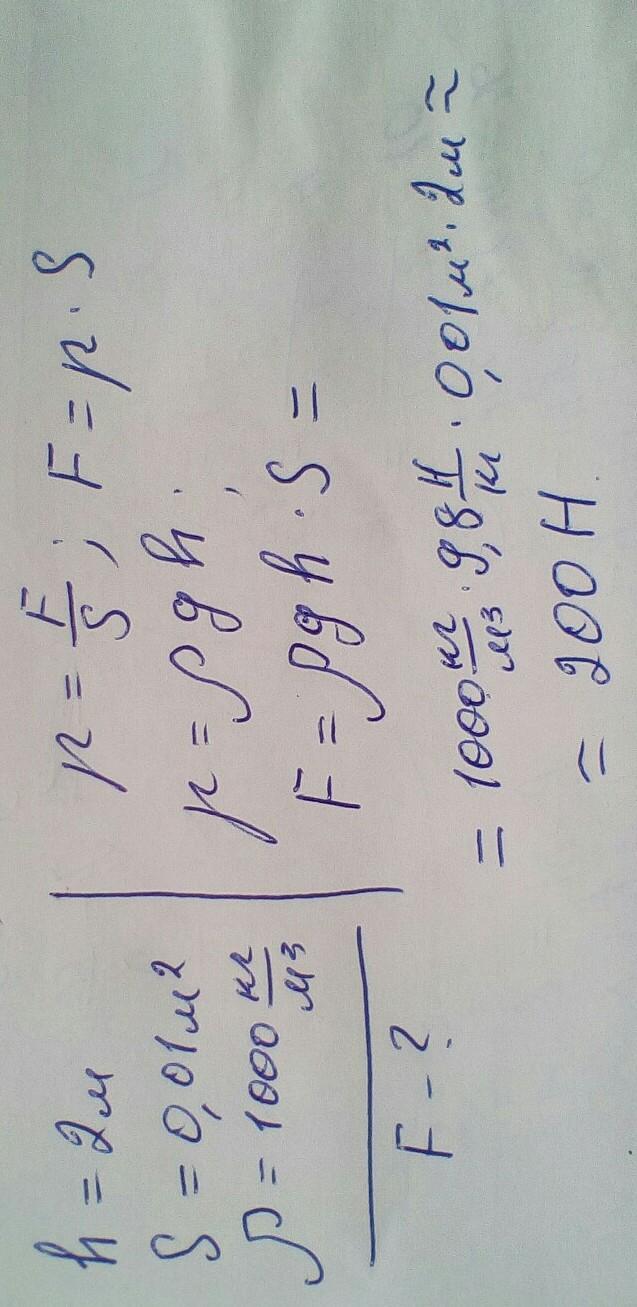 h = 2м
S = 0,01м²
ρ = 1000 кг/м³
F - ?
p = F/S ; F = p · S
p = ρgh ;
F = ρgh · S =
= 1000 кг/м³ · 9,8 Н/кг · 0,01м² · 2м ≈
≈ 200 Н.